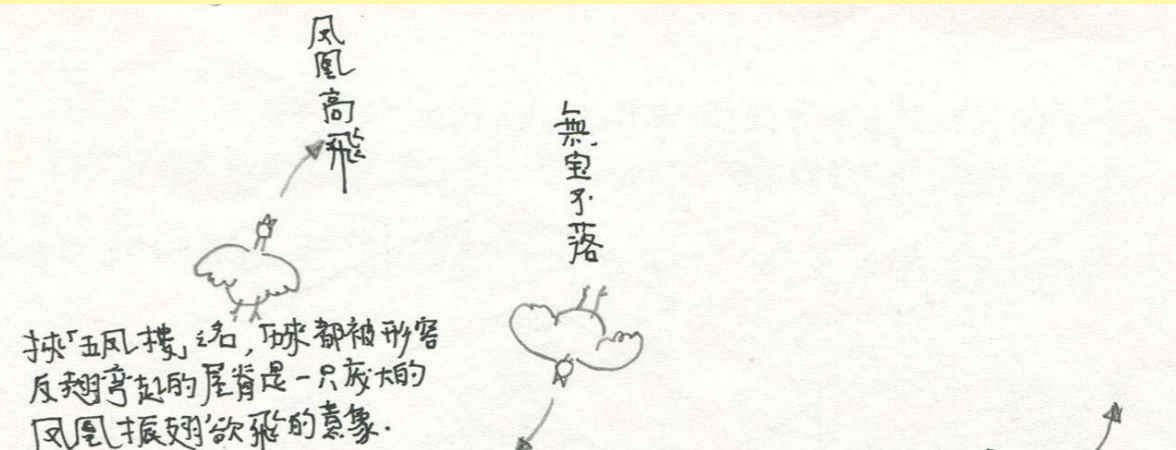 凤凰高飛
無宝不落
挾「五凤樓」之名，历來都被形容
反翹弯起的屋脊是一只庞大的
凤凰振翅欲飛的意象.